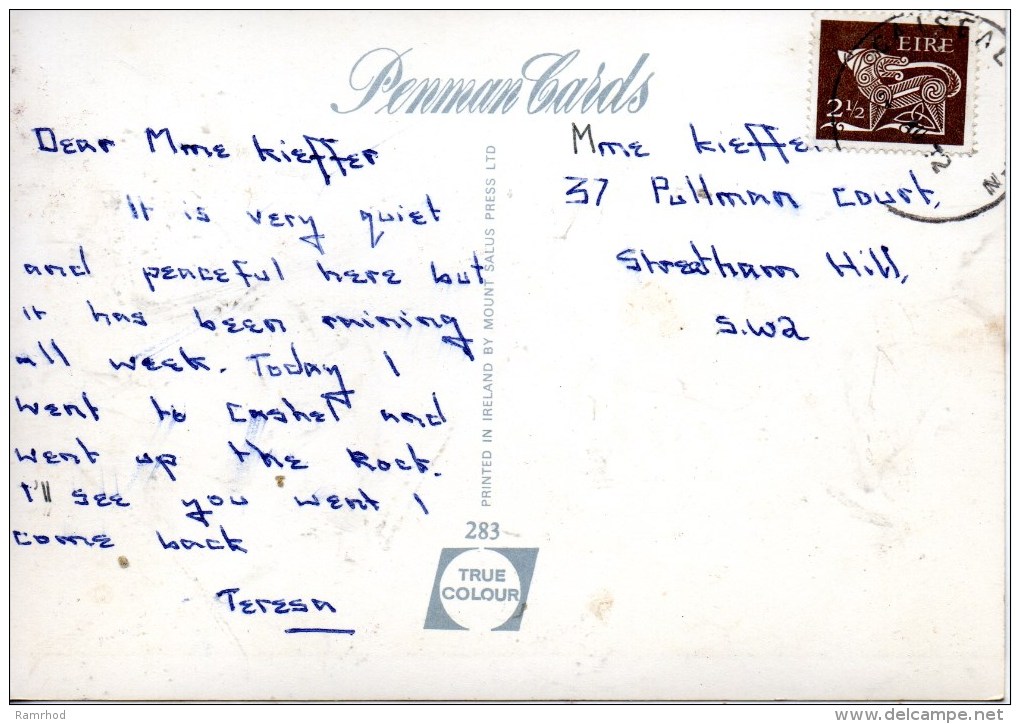 Penman Cards
EIRE
2½
Dear Mme Kieffer
It is very quiet
and peaceful here but
it has been raining
all week. Today I
went to Cashel and
went up the Rock.
I'll see you went I
come back
Teresa
PRINTED IN IRELAND BY MOUNT SALUS PRESS LTD
283
TRUE
COLOUR
Mme Kieffe
37 Pullman Court,
Streatham Hill,
S.W2
Ramrhod
delcampe.net